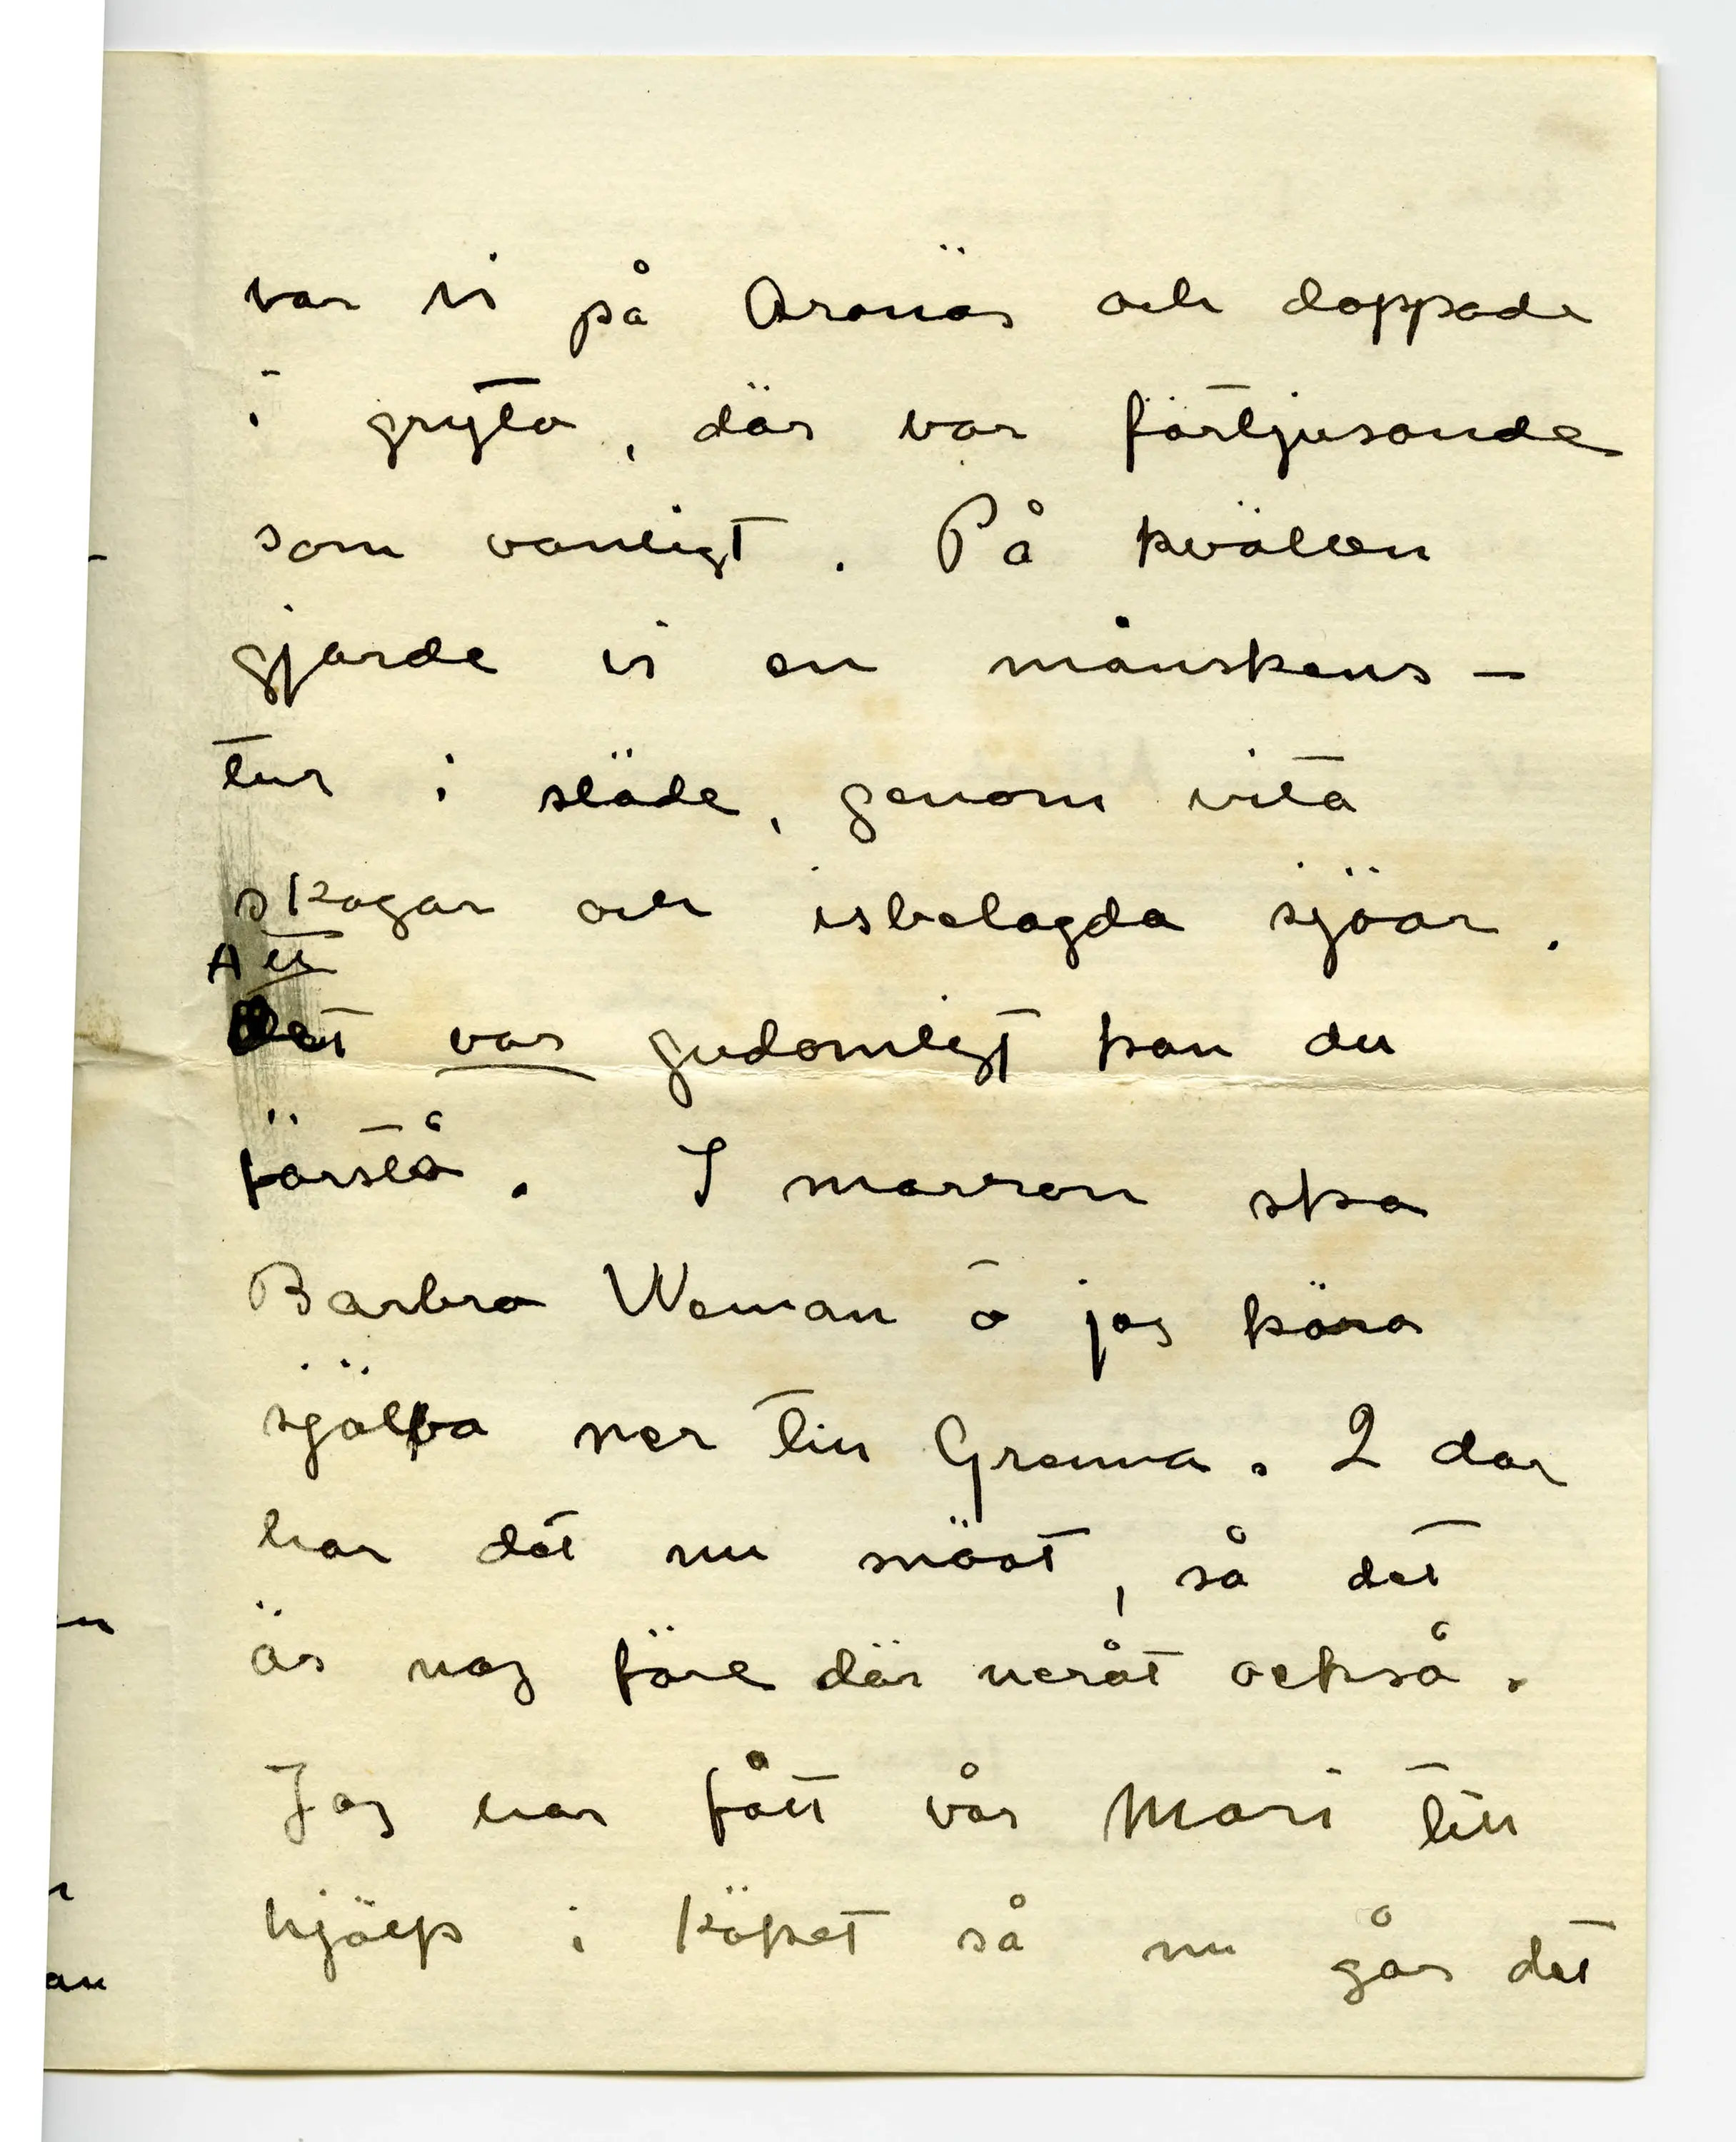 var vi på Aranäs och doppade
i gryta, där var förtjusande
som vanligt. På kvällen
gjorde vi en månskens-
tur i släde, genom vita
skogar och isbelagda sjöar.
Att
det var gudomligt kan du
förstå. I morron ska
Barbro Weman å jag köra
själva ner till Grenna. 2 dar
har det nu snöat, så det
är nog före där neråt också.
Jag har fått vår Mari till
hjälp i köket så nu går det